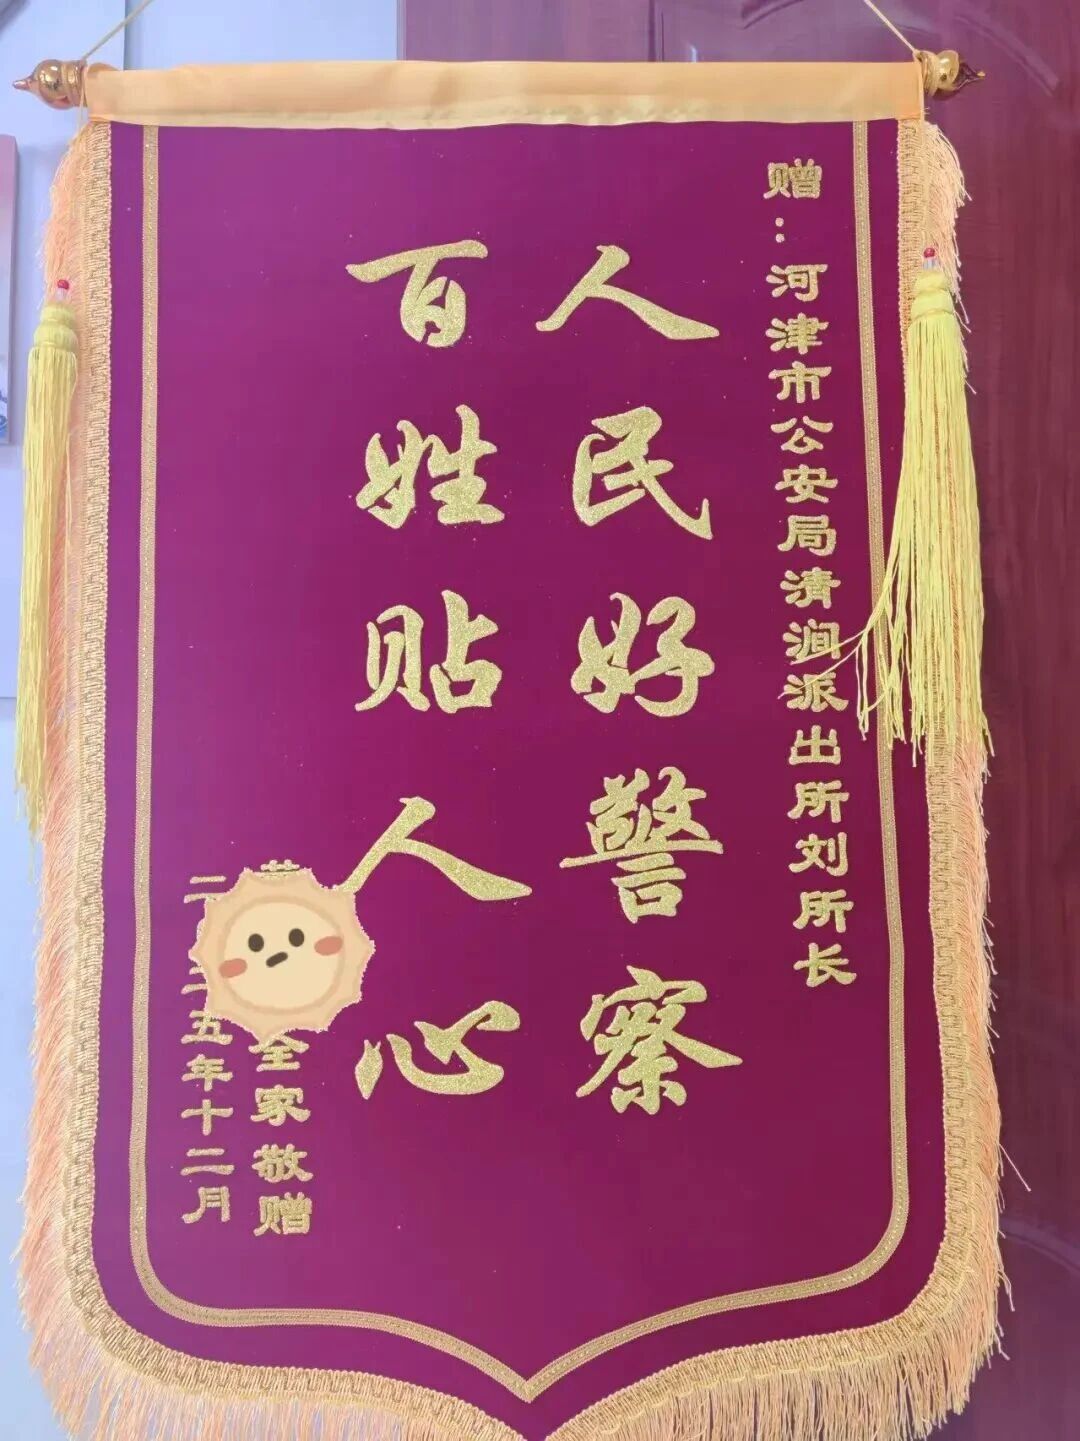 赠：河津市公安局清涧派出所刘所长
人民好警察
百姓贴人心
全家敬赠
二五年十二月